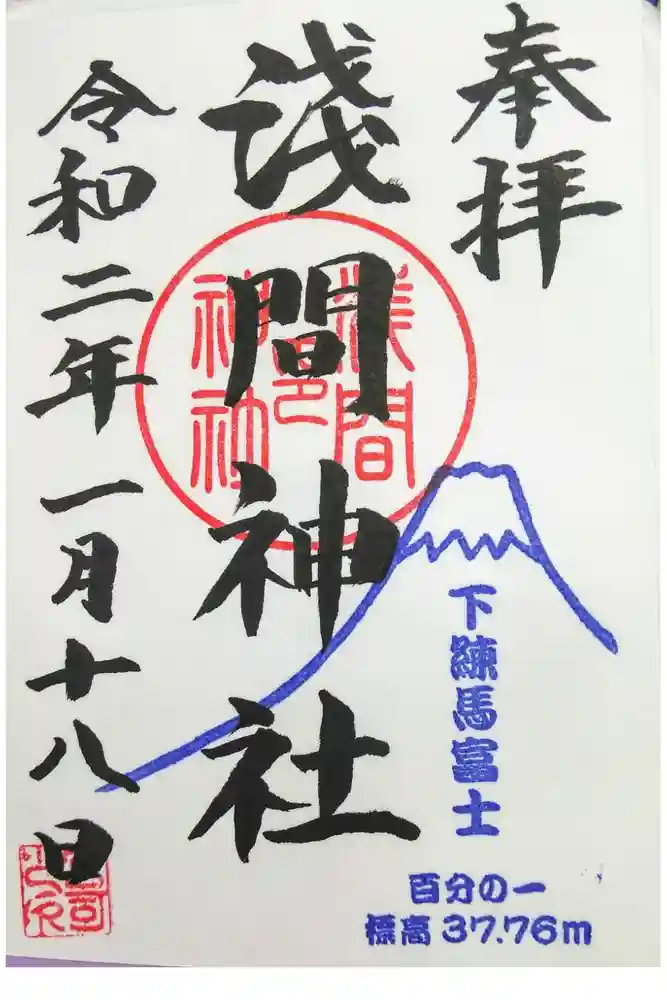 奉拝
浅間神社
令和二年一月十八日
浅間
神社
下練馬富士
百分の一
標高37.76m